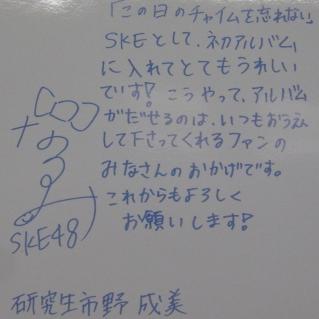 「この日のチャイムを忘れない」
SKEとして、初アルバム
に入れてとてもうれしい
です! こうやって、アルバム
がだせるのは、いつもおうえん
して下さってくれるファンの
みなさんのおかげです。
これからもよろしく
お願いします!
なるる
SKE48
研究生市野 成美